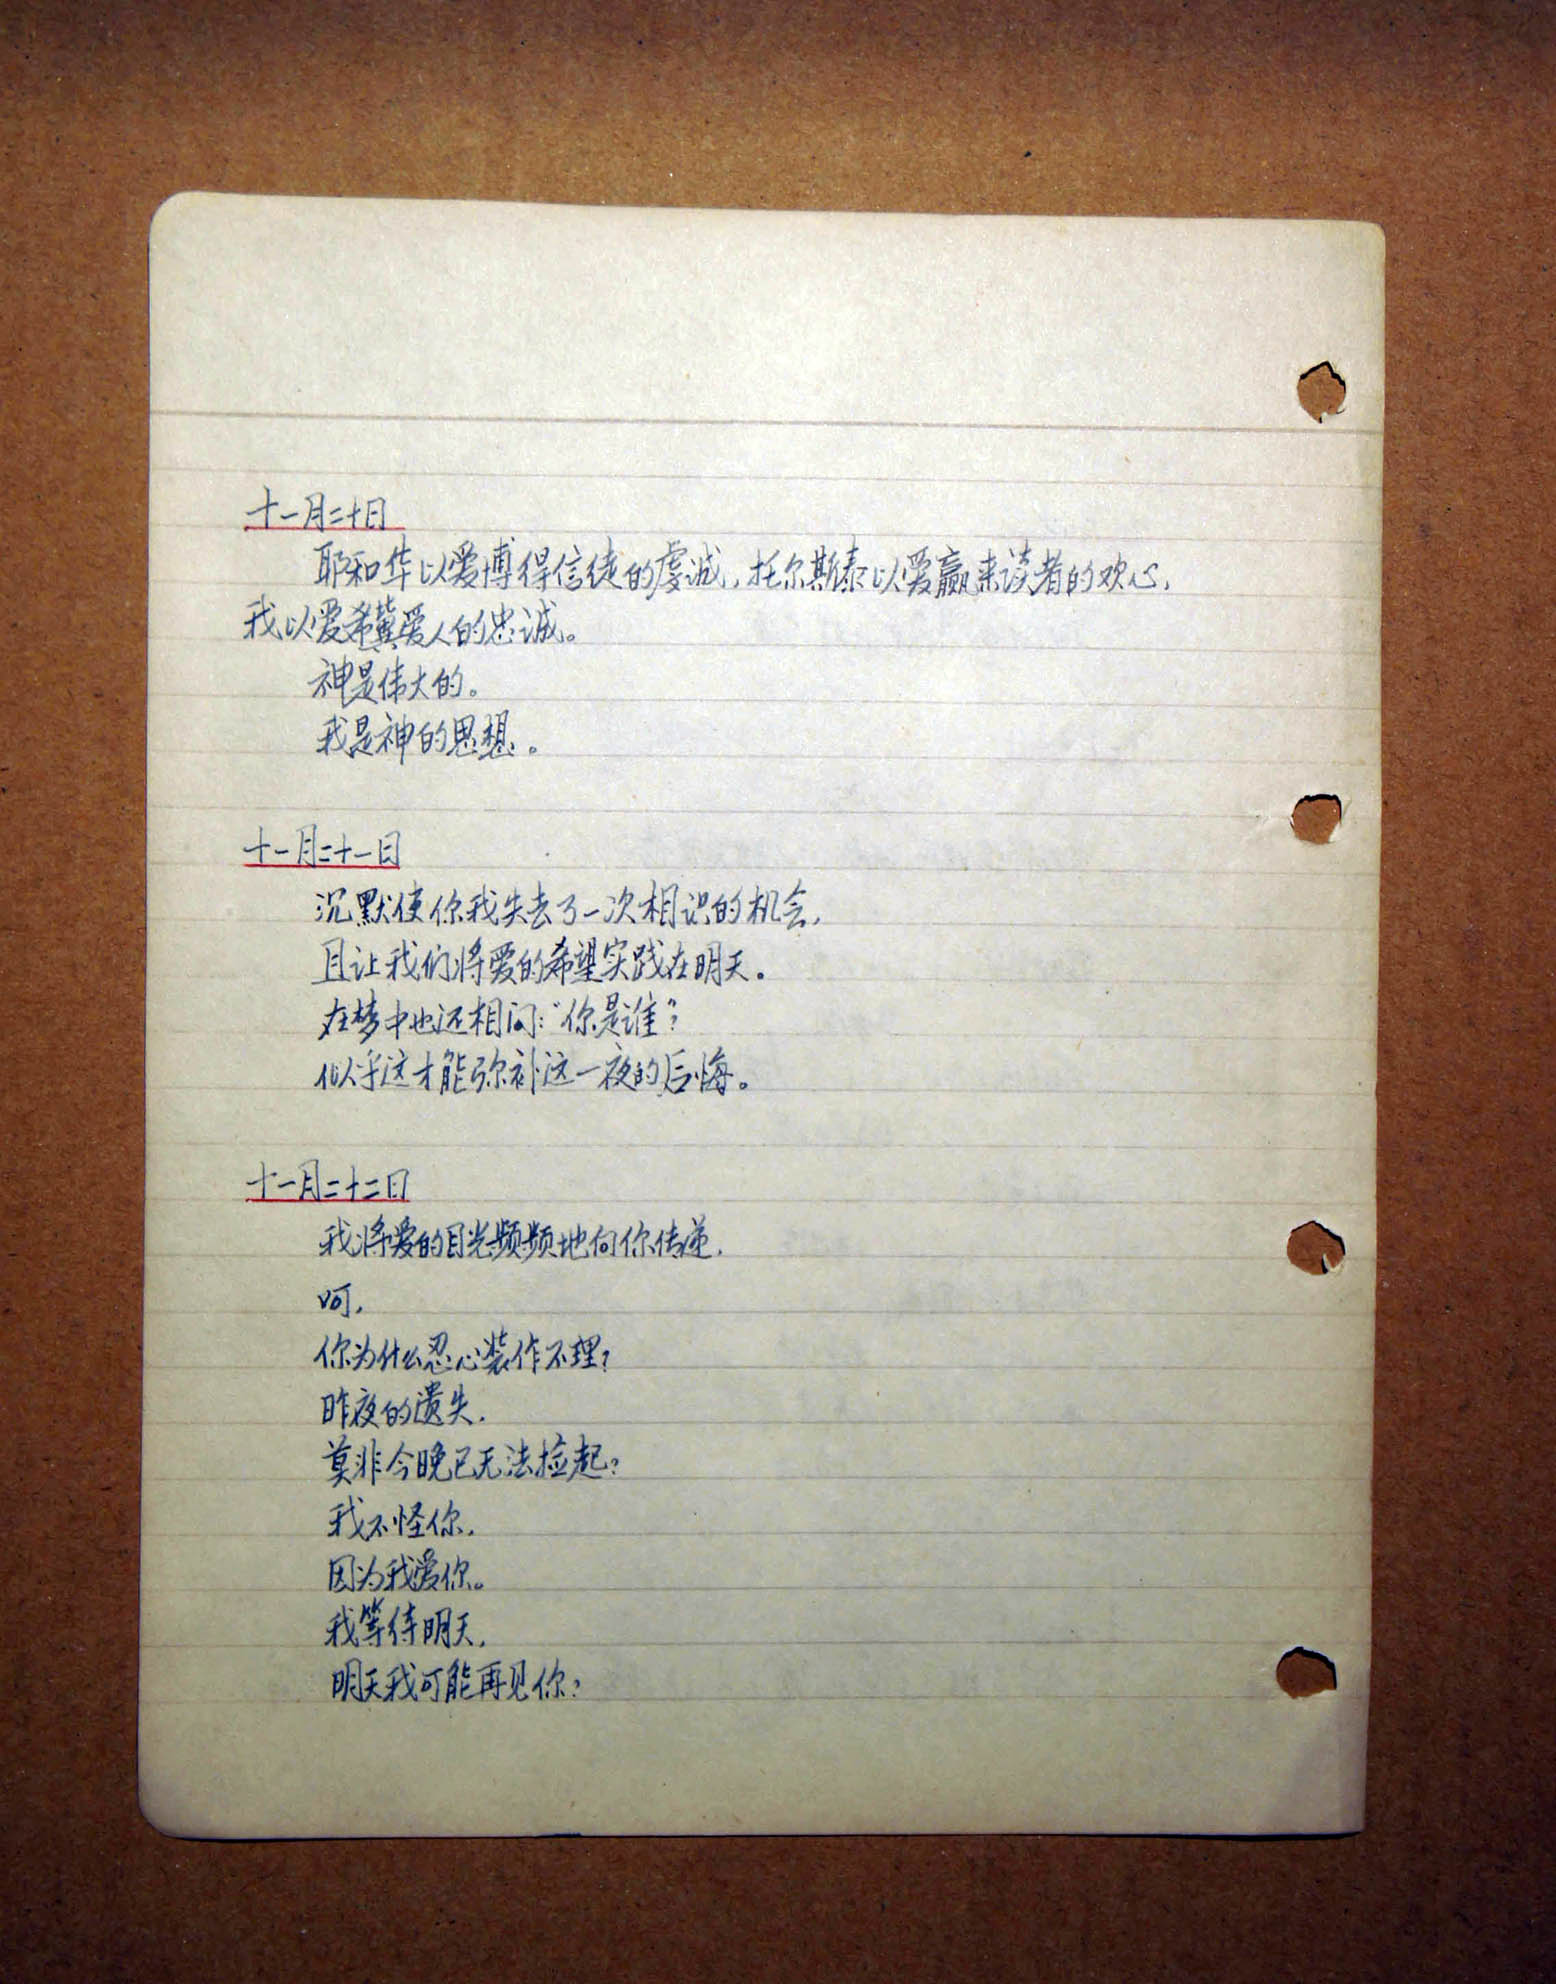 十一月二十日
耶和华以爱博得信徒的虔诚,托尔斯泰以爱赢来读者的欢心,
我以爱希冀爱人的忠诚。
神是伟大的。
我是神的思想。
十一月二十一日
沉默使你我失去了一次相识的机会,
且让我们将爱的希望实践在明天。
在梦中也还相问:“你是谁”?
似乎这才能弥补这一夜的后悔。
十一月二十二日
我将爱的目光频频地向你传递,
呵,
你为什么忍心装作不理?
昨夜的遗失,
莫非今晚已无法捡起?
我不怪你,
因为我爱你。
我等待明天,
明天我可能再见你?